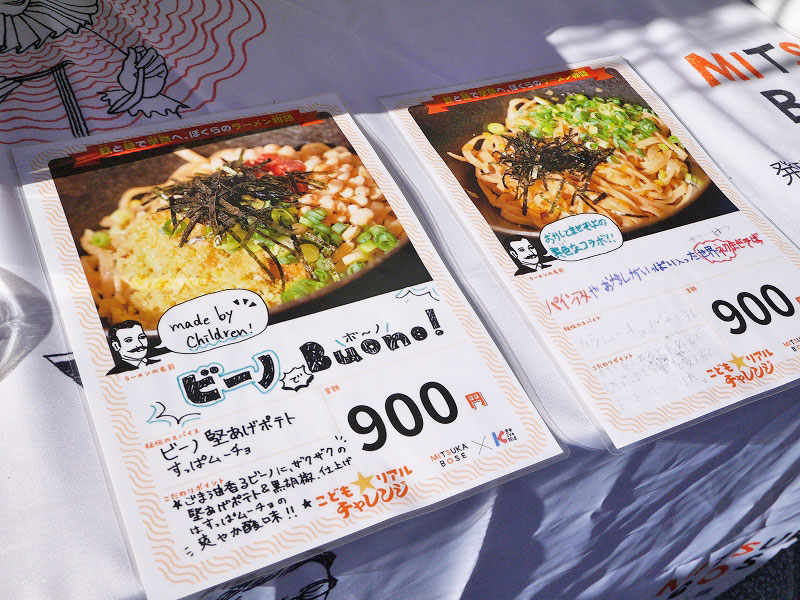 麦と麺で世界へ、ぼくらのラーメン物語
made by
Children!
ラーメンの名前
ボーノ
ビーノ で Buono!
秘伝のスパイス
ビーノ 堅あげポテト
すっぱムーチョ
金額
900 円
こだわりポイント
★ごま油香るビーノに、ザクザクの
堅あげポテト&黒胡椒、仕上げ
はすっぱムーチョの
爽やか酸味!!
こども★リアル
チャレンジ
MiTSUKA
BOSE
×
おかしとまぜそばの
異色なコラボ!!
ラーメンの名前
パインアメやおかしがいっぱい入った世界初まぜそば
秘伝のスパイス
金額
900
こだわりポイント
こども★リアル
チャレンジ
MITS
B
発
MiTSUKA
BOSE